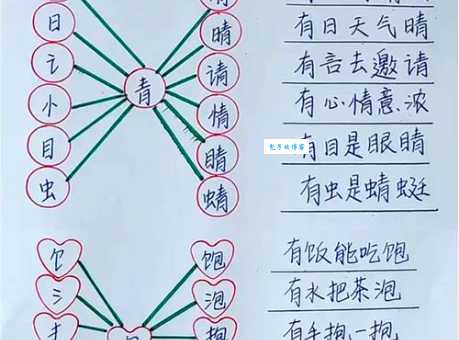 日 晴 有日天气晴
讠 请 有言去邀请
青
小 情 有心情意浓
目 睛 有目是眼睛
乞丐的博客
虫 蜻 有虫是蜻蜓
饣 饱 有饭能吃饱
氵 泡 有水把茶泡
扌 抱 有手抱一抱